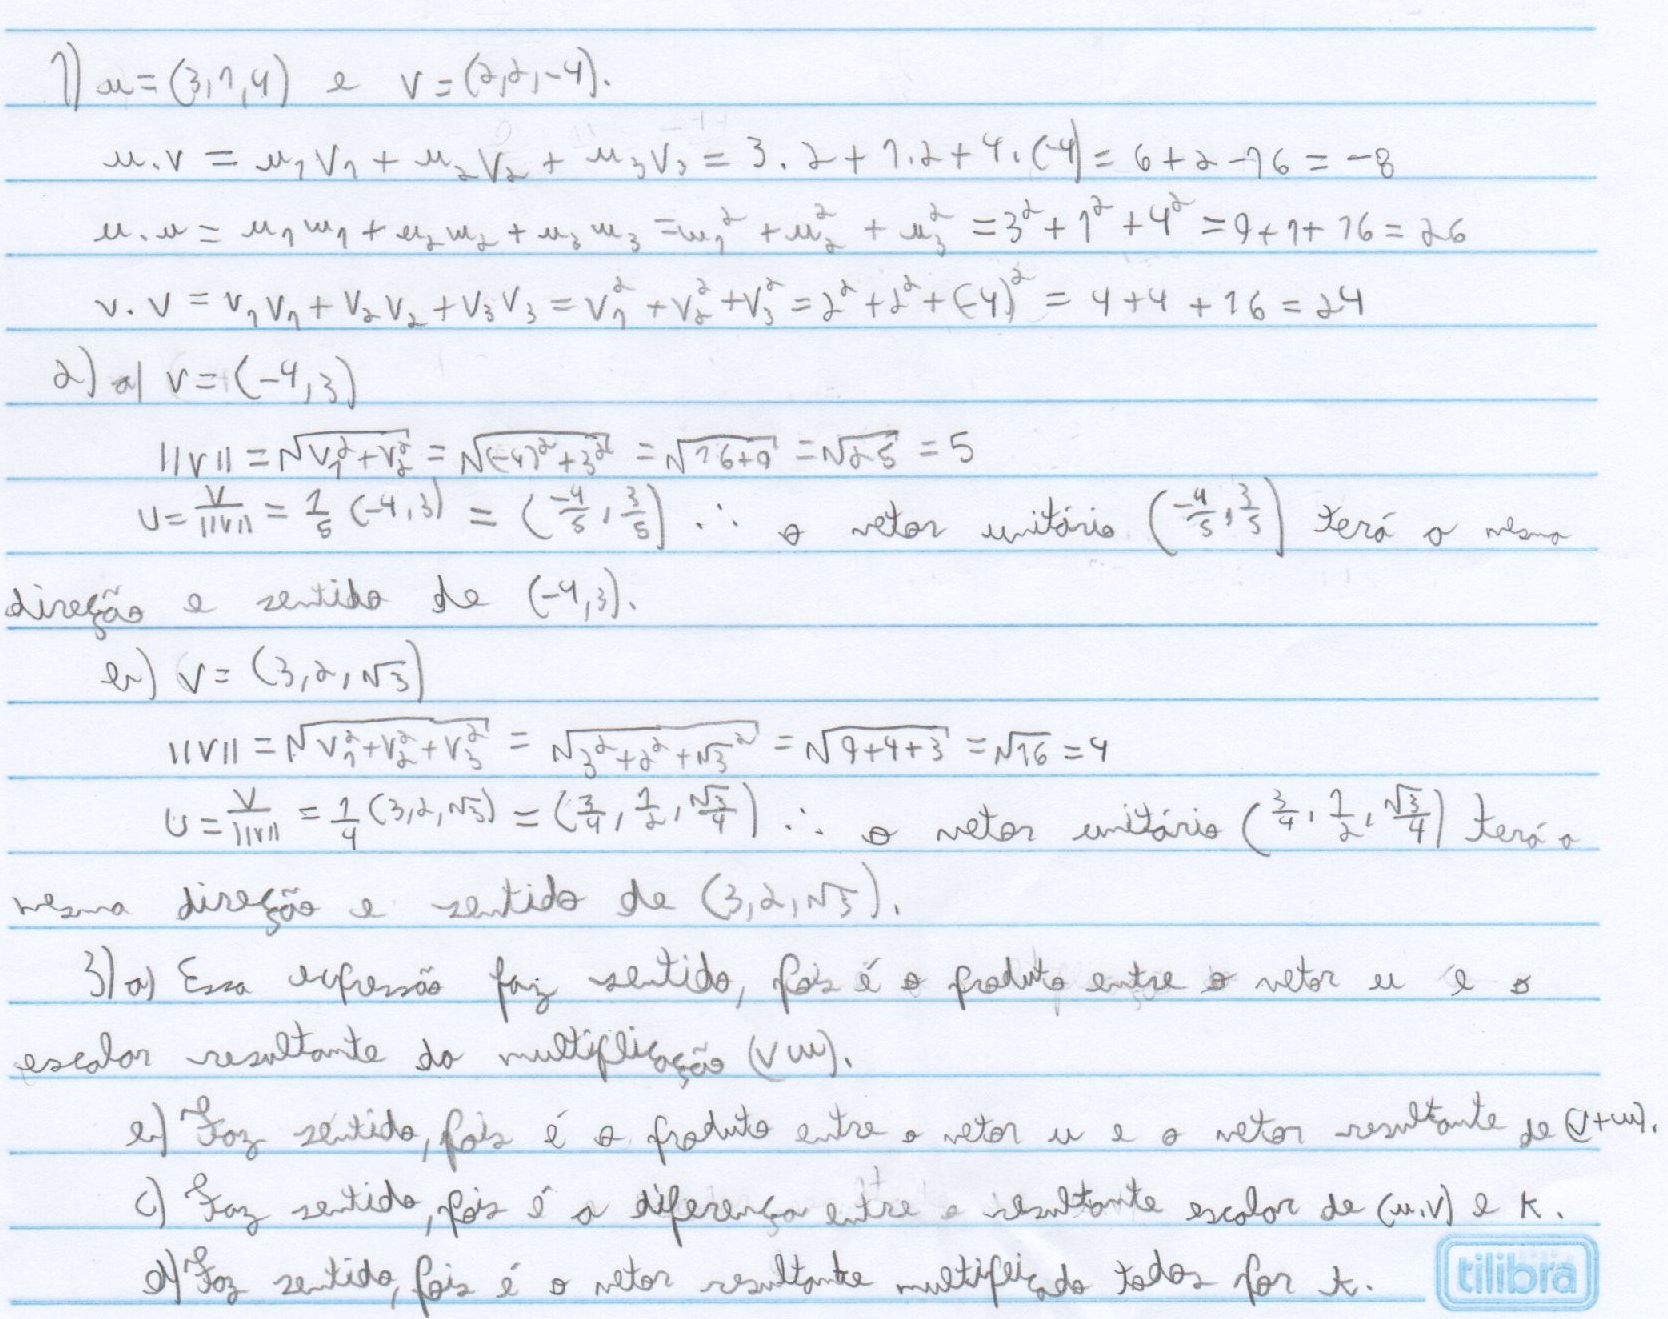 1) u = (3,1,4) e v = (2,2,-4).
u.v = u₁v₁ + u₂v₂ + u₃v₃ = 3.2 + 1.2 + 4.(-4) = 6+2-16 = -8
u.u = u₁u₁ + u₂u₂ + u₃u₃ = u₁² + u₂² + u₃² = 3² + 1² + 4² = 9+1+16 = 26
v.v = v₁v₁ + v₂v₂ + v₃v₃ = v₁² + v₂² + v₃² = 2² + 2² + (-4)² = 4+4+16 = 24
2) a) v = (-4,3)
||v|| = √(v₁²+v₂²) = √((-4)²+3²) = √(16+9) = √25 = 5
U = v/||v|| = 1/5 (-4,3) = (-4/5, 3/5) ∴ o vetor unitário (-4/5, 3/5) terá a mesma
direção e sentido de (-4,3).
b) v = (3,2,√3)
||v|| = √(v₁²+v₂²+v₃²) = √(3²+2²+√3²) = √(9+4+3) = √16 = 4
U = v/||v|| = 1/4 (3,2,√3) = (3/4, 1/2, √3/4) ∴ o vetor unitário (3/4, 1/2, √3/4) terá a
mesma direção e sentido de (3,2,√3).
3) a) Essa expressão faz sentido, pois é o produto entre o vetor u e o
escalar resultante da multiplicação (vw).
b) Faz sentido, pois é o produto entre o vetor u e o vetor resultante de (v+w).
c) Faz sentido, pois é a diferença entre o resultante escalar de (u.v) e k.
d) Faz sentido, pois é o vetor resultante multiplicado todos por k.
tilibra